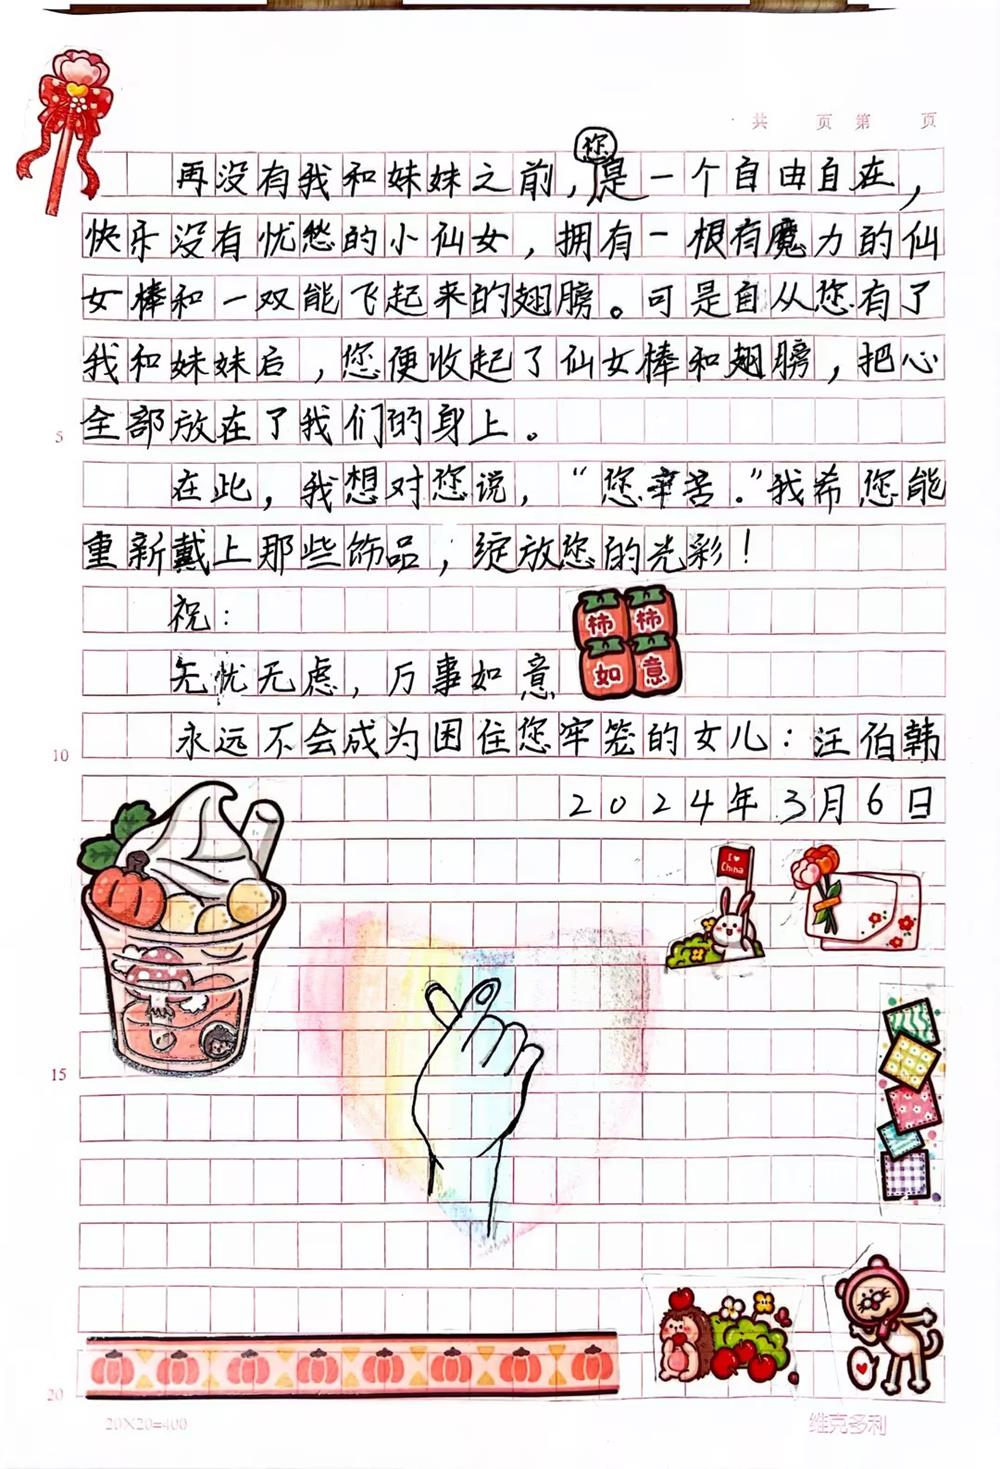 共 页 第 页
再没有我和妹妹之前，您是一个自由自在，
快乐没有忧愁的小仙女，拥有一根有魔力的仙
女棒和一双能飞起来的翅膀。可是自从您有了
我和妹妹后，您便收起了仙女棒和翅膀，把心
5 全部放在了我们的身上。
在此，我想对您说，“您辛苦.”我希您能
重新戴上那些饰品，绽放您的光彩！
祝：
无忧无虑，万事如意
柿柿如意
10 永远不会成为困住您牢笼的女儿：汪伯韩
2024年3月6日
I ♥ China
15
20
20×20=400 维克多利